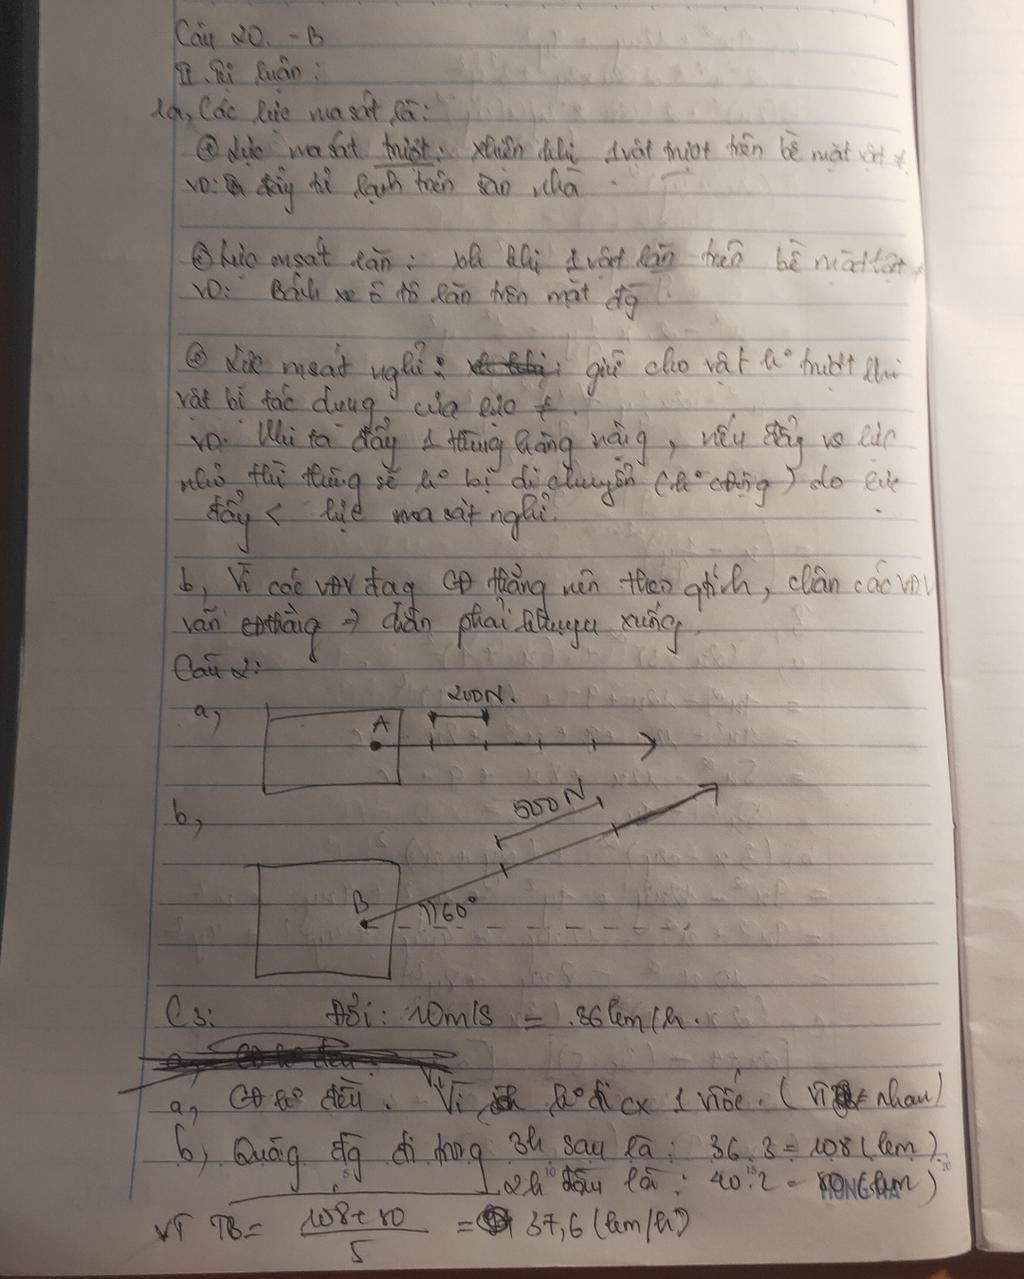 Câu 20. - B
II. Tự luận:
1a, Các lực ma sát là:
+ Lực ma sát trượt: xhiện khi 1 vật trượt trên bề mặt vật ≠.
VD: đẩy tủ lạnh trên sàn nhà.
+ Lực msát lăn: xh khi 1 vật lăn trên bề mặt vật ≠
VD: Bánh xe ô tô lăn trên mặt đg
+ Lực msát nghỉ: giữ cho vật ko trượt khi
vật bị tác dụng của lực ≠.
VD: Khi ta đẩy 1 thùng hàng nặng, nếu đẩy vs lực
nhỏ thì thùng sẽ ko bị di chuyển (ko cđộng) do lực
đẩy < lực ma sát nghỉ.
b, Vì các VĐV đag CĐ thẳng nên theo qtính, chân các VĐV
vẫn cđ thẳng → chân phải khuỵu xuống.
Câu 2:
a,
200N.
A
b,
500N
B
60°
C3: Đổi: 10m/s = 36km/h.
a, CĐ ko đều. Vì ko đi cx 1 vtốc. (vì ≠ nhau)
b, Quãng đg đi trong 3h sau là: 36.3 = 108 (km)
2h đầu là: 40.2 = 80 (km)
HONG HA
VT TB = 108 + 80 / 5 = 37,6 (km/h)